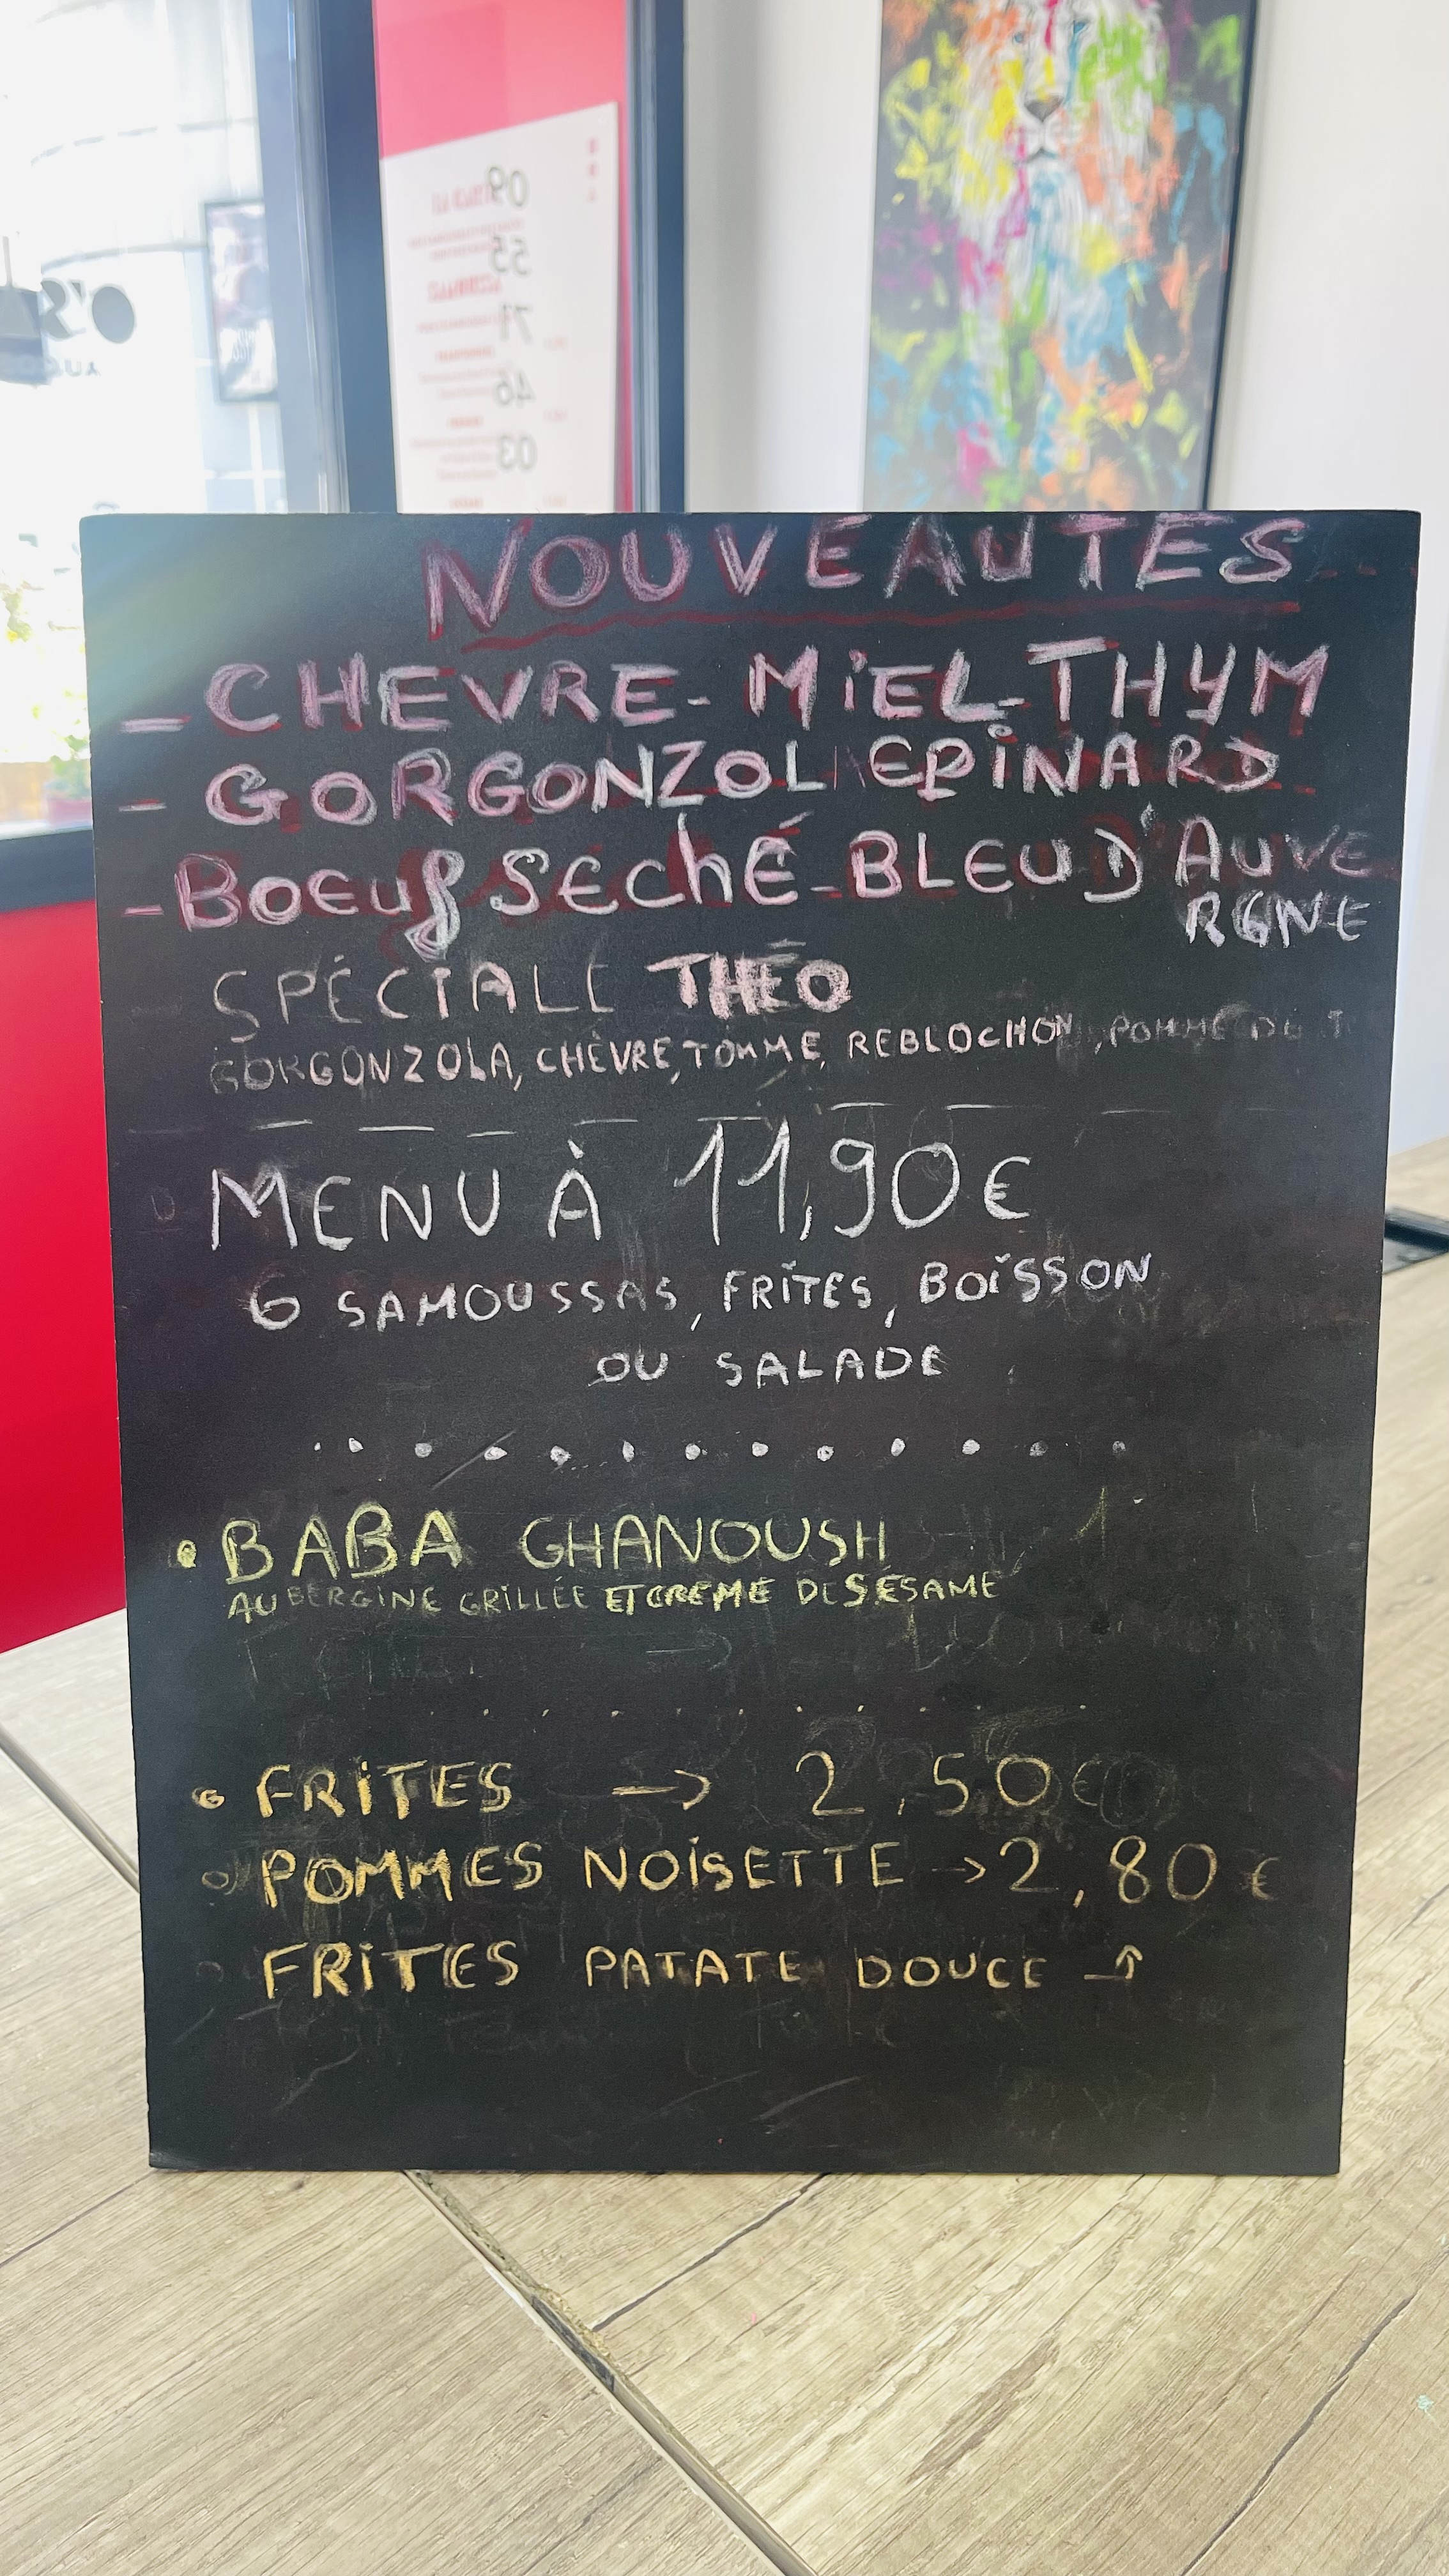 09
55
71
46
03
NOUVEAUTES
- CHEVRE - MiEL - THYM
- GORGONZOL EPINARD
- BOEUf SECHÉ - BLEU D'AUVE
RGNE
SPÉCIALE THÉO
GORGONZOLA, CHÈVRE, TOMME, REBLOCHON, POMME DE T
MENU À 11,90€
6 SAMOUSSAS, FRITES, BOISSON
OU SALADE
• BABA GHANOUSH
AUBERGINE GRILLÉE ET CREME DE SESAME
• FRITES → 2,50€
POMMES NOISETTE → 2,80 €
FRITES PATATE DOUCE ↑